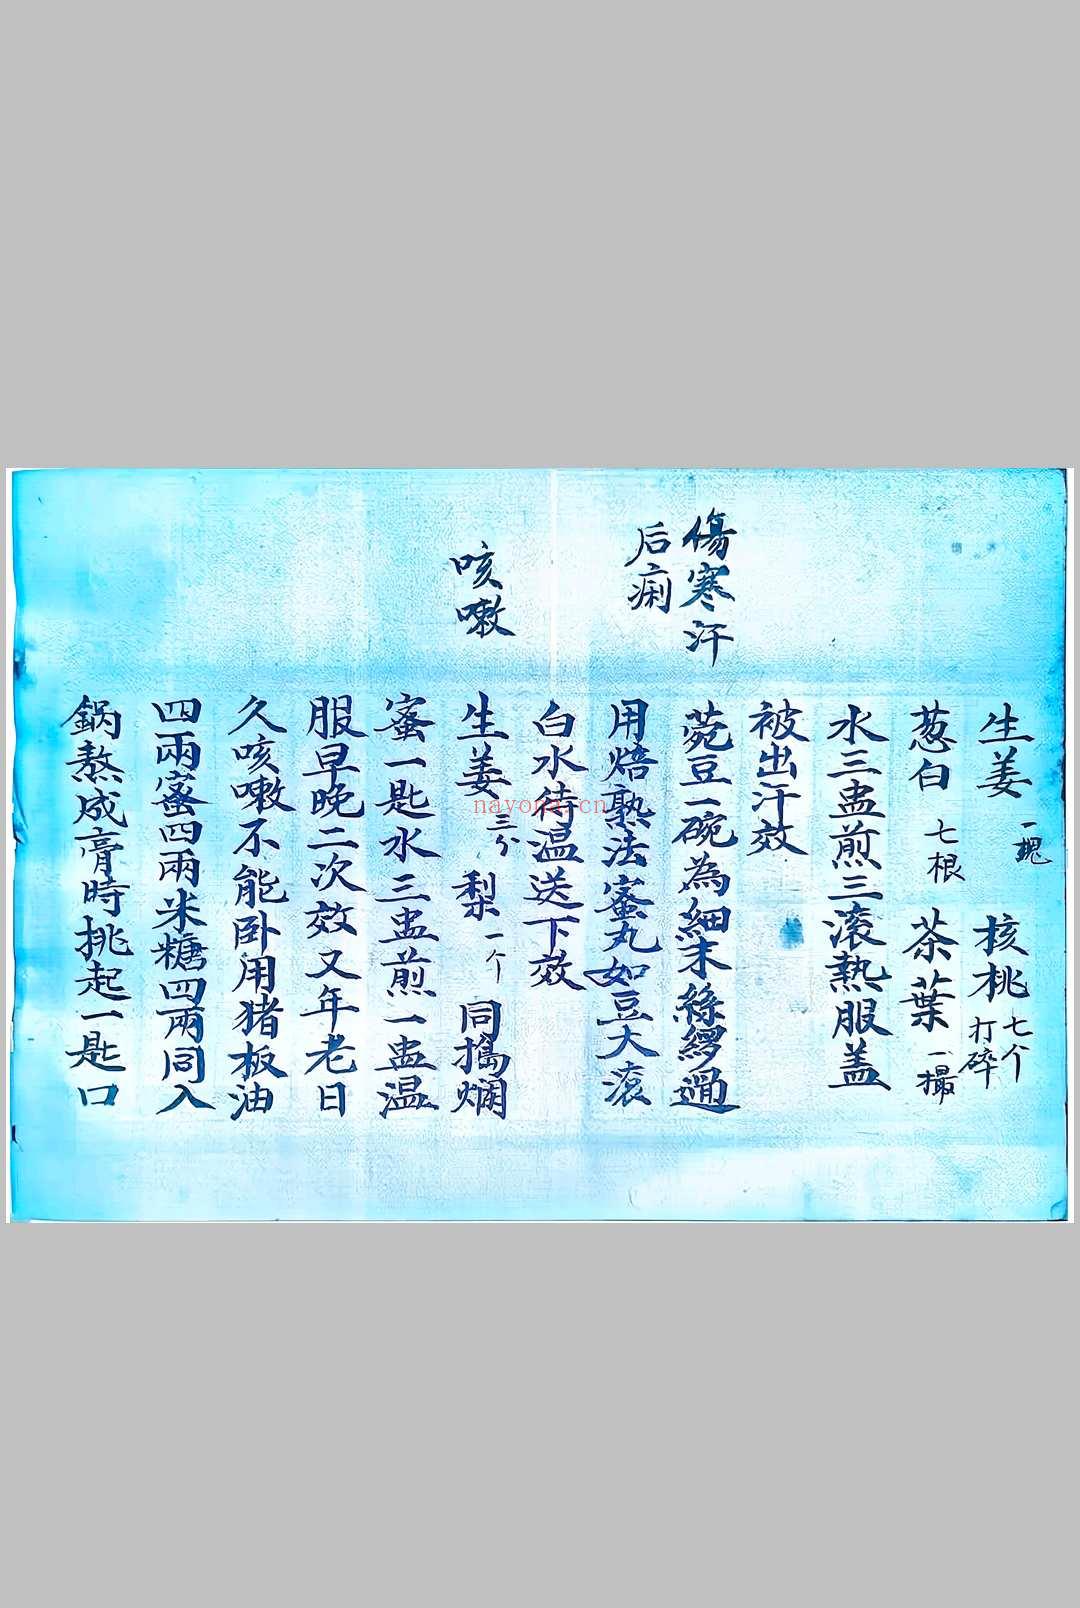 生姜 一塊 核桃 七个 打碎
葱白 七根 茶葉 一撮
水三盅煎三滚熱服盖
被出汗效
傷寒汗
后痢
菀豆一碗為細末絲繆過
用焙熟法蜜丸如豆大滚
白水待温送下效
咳嗽
生姜 三分 梨 一个 同搗爛
蜜一匙水三盅煎一盅温
服早晚二次效又年老日
久咳嗽不能卧用猪板油
四兩蜜四兩米糖四兩同入
鍋熬成膏時挑起一匙口
nayona.cn